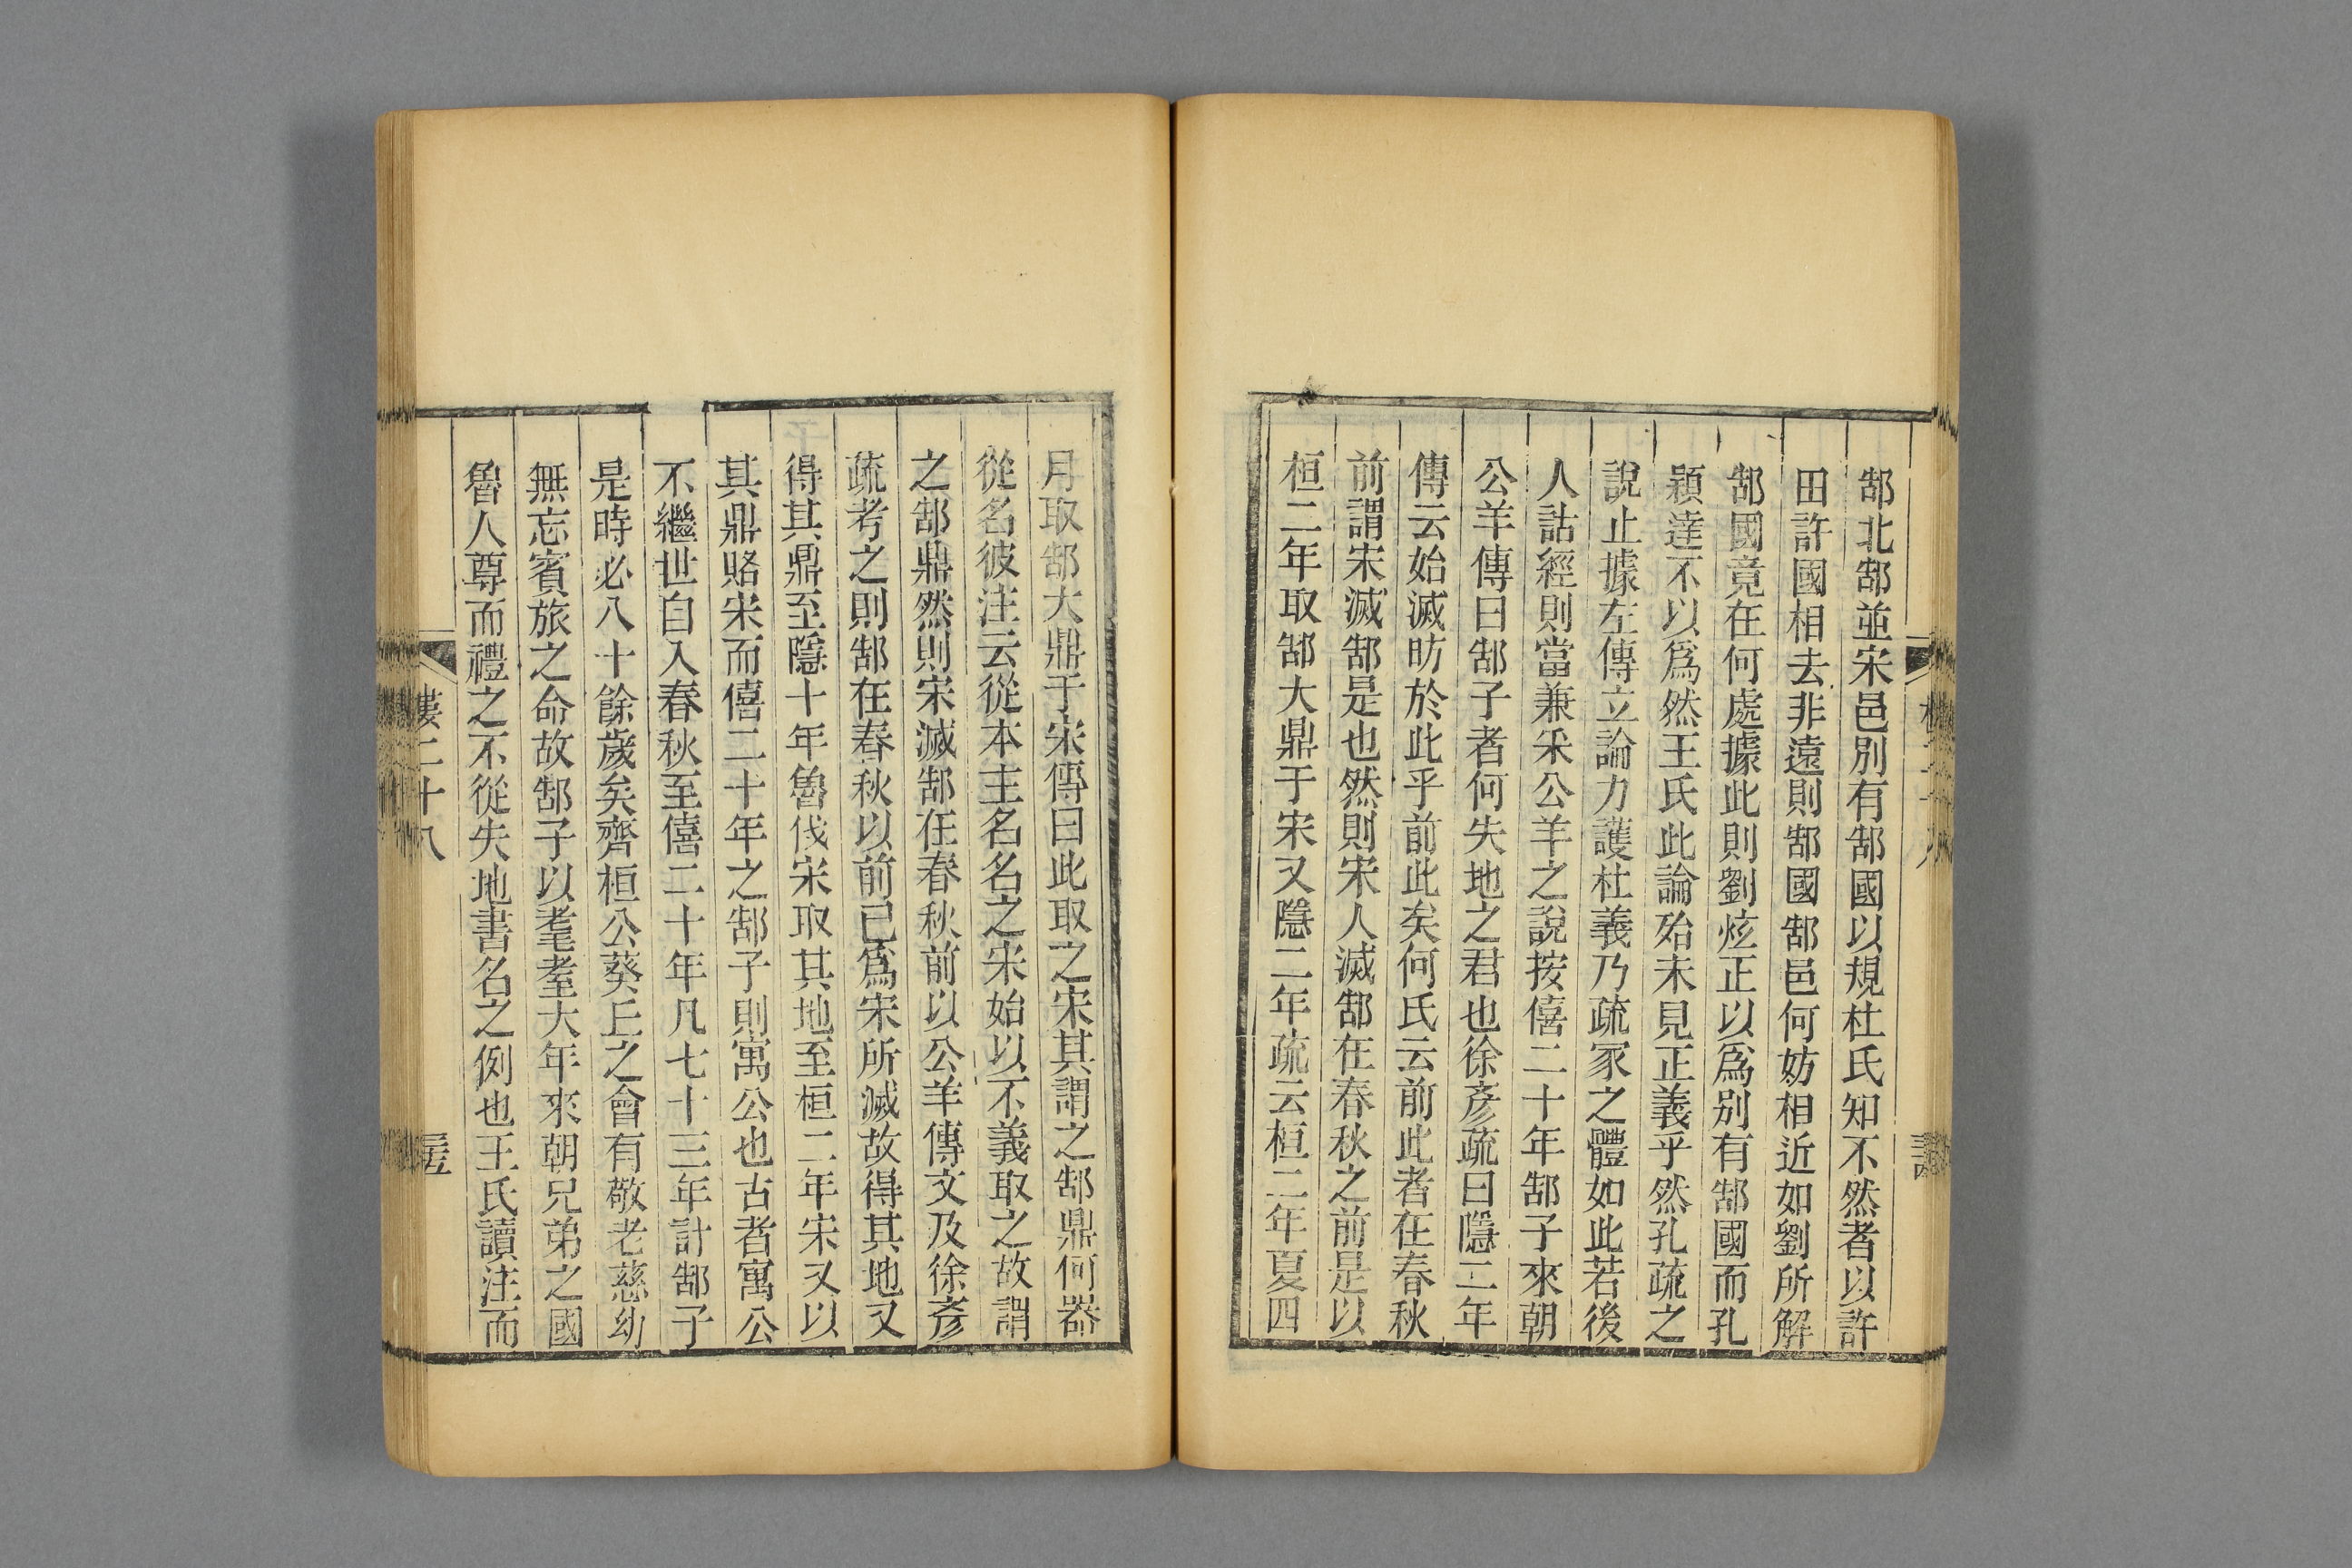 郜北郜並宋邑別有郜國以規杜氏知不然者以許
田許國相去非遠則郜國郜邑何妨相近如劉所解
郜國竟在何處據此則劉炫正以爲別有郜國而孔
穎達不以爲然王氏此論殆未見正義乎然孔疏之
說止據左傳立論力護杜義乃疏冢之體如此若後
人詁經則當兼采公羊之說按僖二十年郜子來朝
公羊傳曰郜子者何失地之君也徐彥疏曰隱二年
傳云始滅昉於此乎前此矣何氏云前此者在春秋
前謂宋滅郜是也然則宋人滅郜在春秋之前是以
桓二年取郜大鼎于宋又隱二年疏云桓二年夏四
月取郜大鼎于宋傳曰此取之宋其謂之郜鼎何器
從名彼注云從本主名名之宋始以不義取之故謂
之郜鼎然則宋滅郜在春秋前以公羊傳文及徐彥
疏考之則郜在春秋以前已爲宋所滅故得其地又
得其鼎至隱十年魯伐宋取其地至桓二年宋又以
其鼎賂宋而僖二十年之郜子則寓公也古者寓公
不繼世自入春秋至僖二十年凡七十三年計郜子
是時必八十餘歲矣齊桓公葵丘之會有敬老慈幼
無忘賓旅之命故郜子以耄耋大年來朝兄弟之國
魯人尊而禮之不從失地書名之例也王氏讀注而
樓二十八